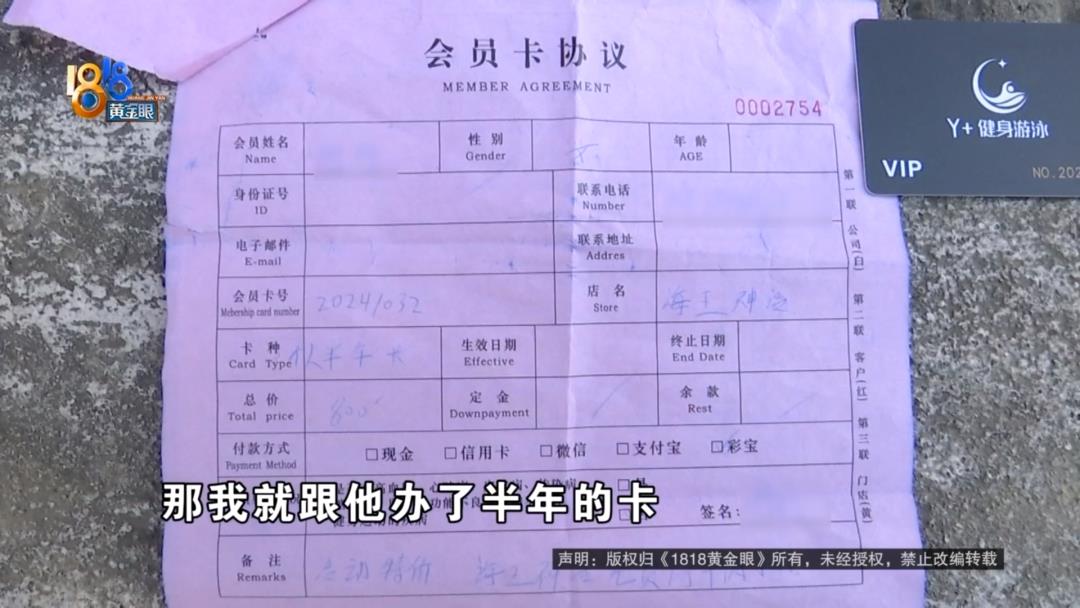 会员卡协议
MEMBER AGREEMENT
0002754
1818
黄金眼
HUANG JIN YAN
Y+ 健身游泳
VIP
NO.202
会员姓名
Name
性别
Gender
年龄
AGE
身份证号
ID
联系电话
Number
电子邮件
E-mail
联系地址
Addres
会员卡号
Mebership card number
2024/032
店名
Store
卡种
Card Type
半年卡
生效日期
Effective
终止日期
End Date
总价
Total price
800
定金
Downpayment
余款
Rest
付款方式
Payment Method
□现金 □信用卡 □微信 □支付宝 □彩宝
签名:
备注
Remarks
第一联 公司(白) 第二联 客户(红) 第三联 门店(黄)
那我就跟他办了半年的卡
声明：版权归《1818黄金眼》所有，未经授权，禁止改编转载